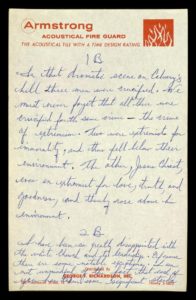 Armstrong
ACOUSTICAL FIRE GUARD
THE ACOUSTICAL TILE WITH A TIME DESIGN RATING
1B
In that dramatic scene on Calvary's
hill three men were crucified. We
must never forget that all three were
crucified for the same crime - the crime
of extremism. Two were extremists for
immorality, and thus fell below their
environment. The other, Jesus Christ
was an extremist for love, truth, and
goodness, and thereby rose above his
environment.
2B
I have been so greatly disappointed with
the white church and its leadership. Of course
there are some notable exceptions. I am
not unmindful of the fact that each of
GEORGE F. RICHARDSON, INC.